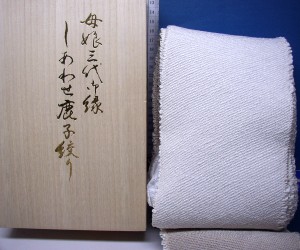 母娘三代御縁
しあわせ鹿子絞り